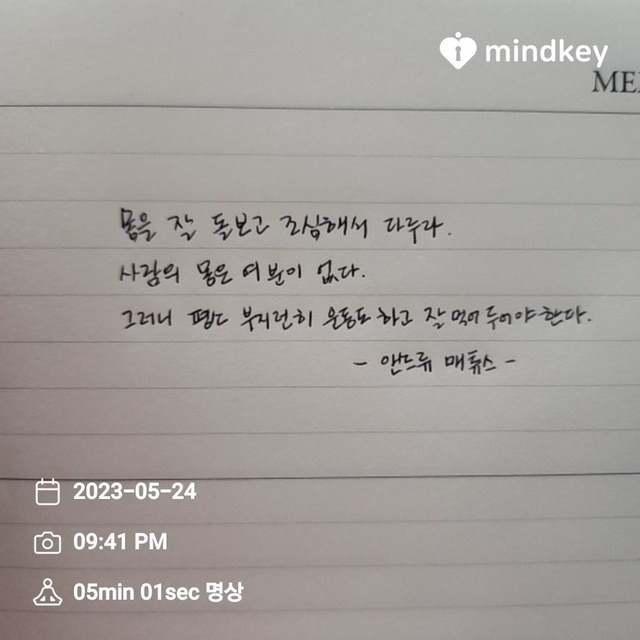 mindkey
몸을 잘 돌보고 조심해서 다루라.
사람의 몸은 여분이 없다.
그러니 평소 부지런히 운동도 하고 잘 먹어 두어야 한다.
- 앤드류 매튜스 -
2023-05-24
09:41 PM
05min 01sec 명상